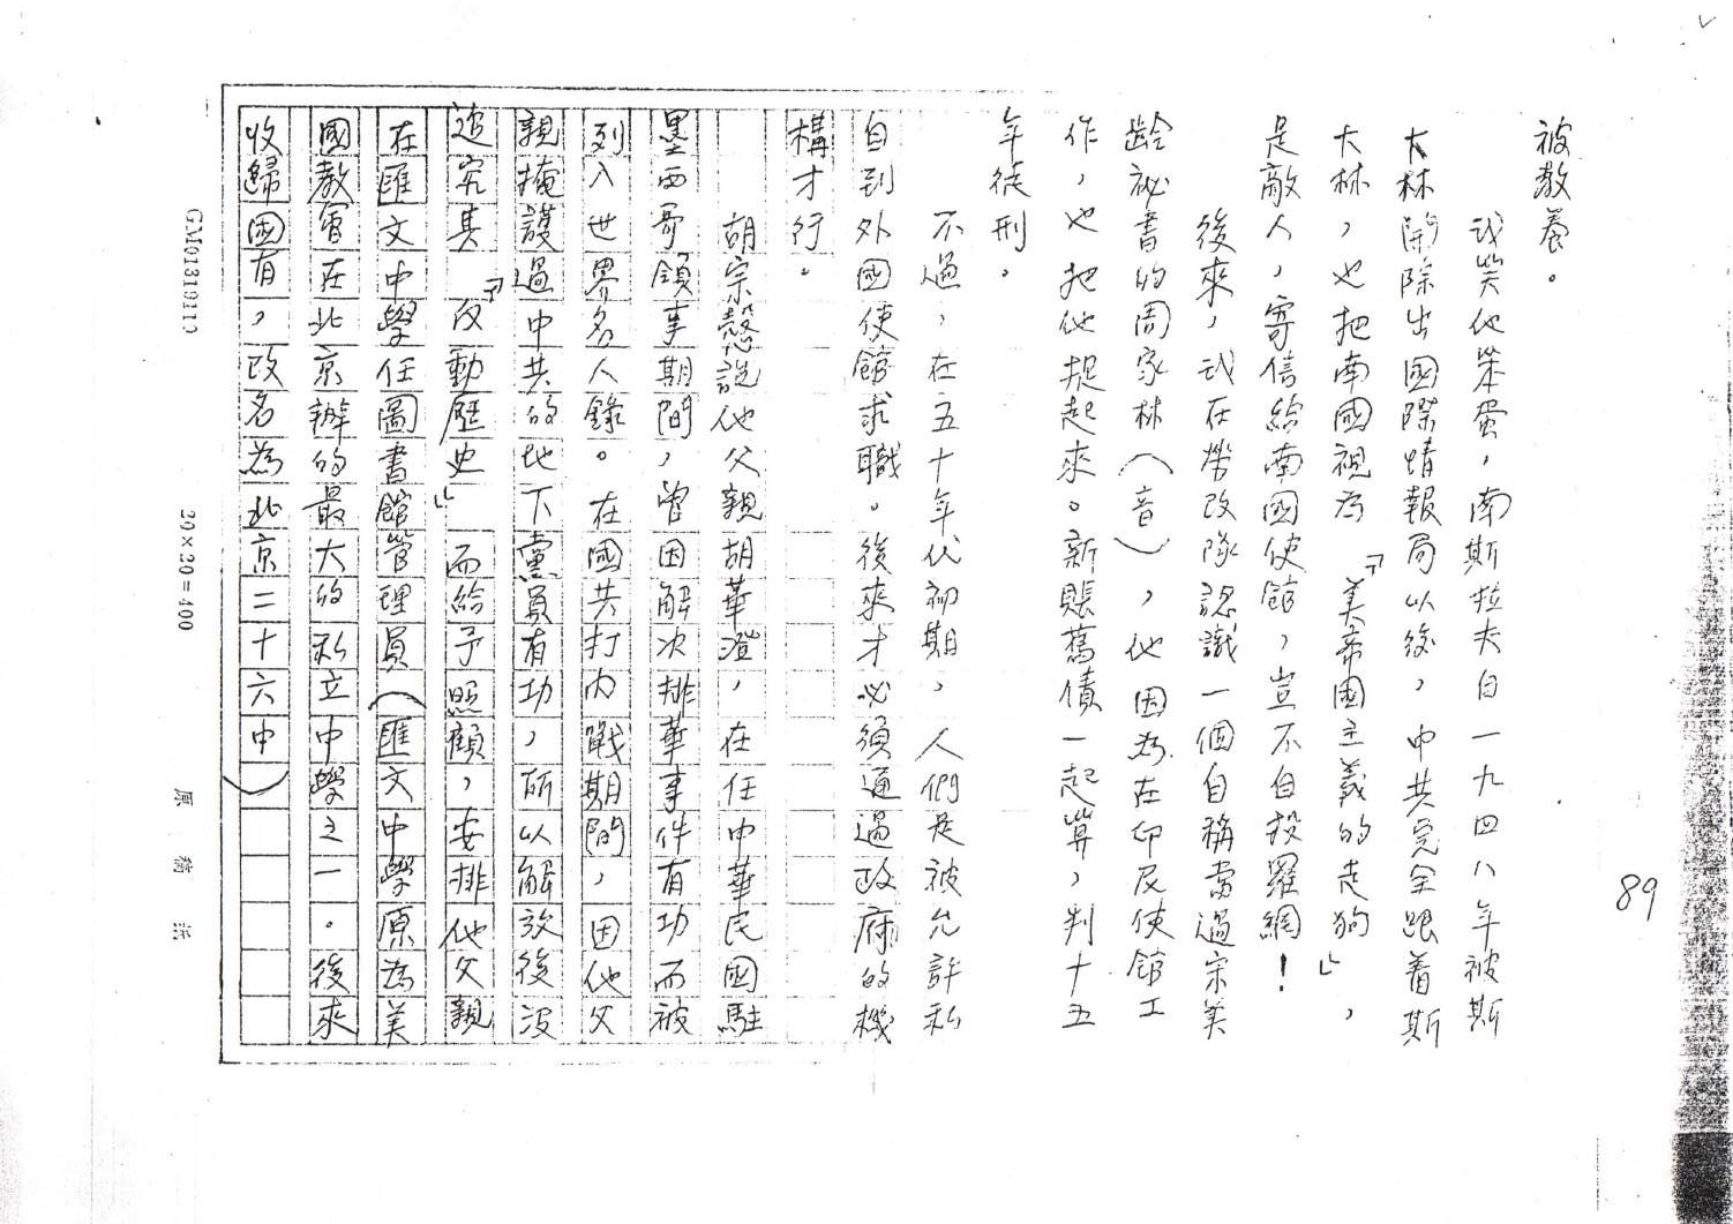 89
被教養。
我笑他笨蛋，南斯拉夫自一九四八年被斯
大林開除出國際情報局以後，中共完全跟着斯
大林，也把南國視為『美帝國主義的走狗』，
是敵人，寄信給南國使館，豈不自投羅網！
後來，我在勞改隊認識一個自稱當過宋美
齡祕書的周家林（音），他因為在印尼使館工
作，也把他捉起來。新賬舊債一起算，判十五
年徒刑。
不過，在五十年代初期，人們是被允許私
自到外國使館求職。後來才必須通過政府的機
構才行。
胡宗慤説他父親胡華澄，在任中華民國駐
墨西哥領事期間，曾因解決排華事件有功而被
列入世界名人錄。在國共打內戰期間，因他父
親掩護過中共的地下黨員有功，所以解放後沒
追究其『反動歷史』而給予照顧，安排他父親
在匯文中學任圖書館管理員（匯文中學原為美
國教會在北京辦的最大的私立中學之一。後來
收歸國有，改名為北京二十六中）
GM01319110
20×20=400
原稿紙